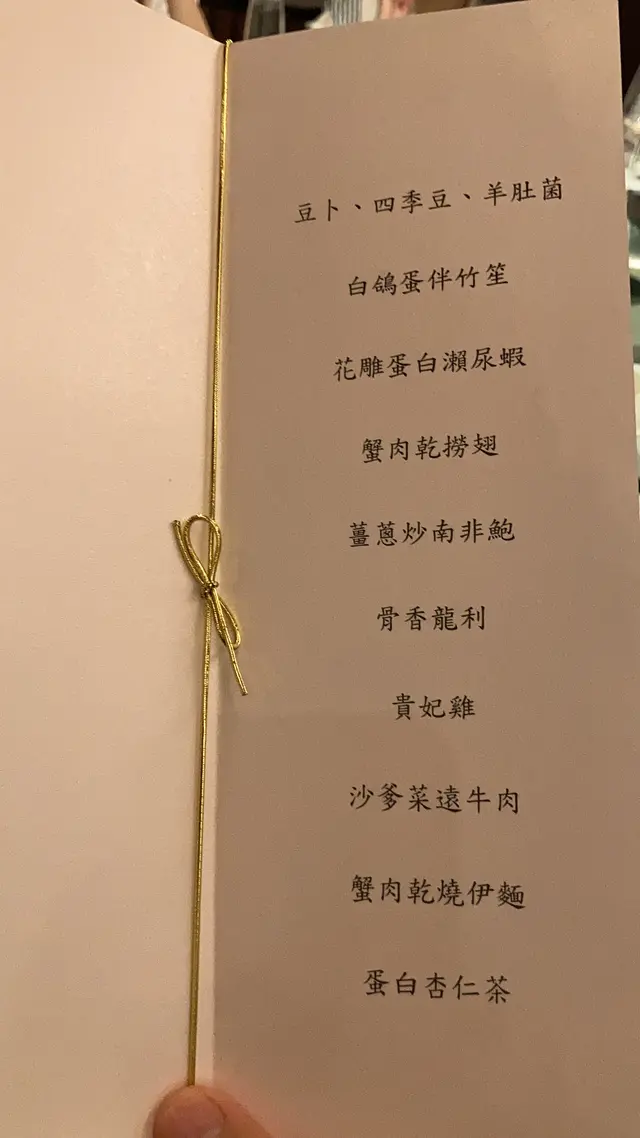 豆卜、四季豆、羊肚菌
白鴿蛋伴竹笙
花雕蛋白瀨尿蝦
蟹肉乾撈翅
薑蔥炒南非鮑
骨香龍利
貴妃雞
沙爹菜遠牛肉
蟹肉乾燒伊麵
蛋白杏仁茶